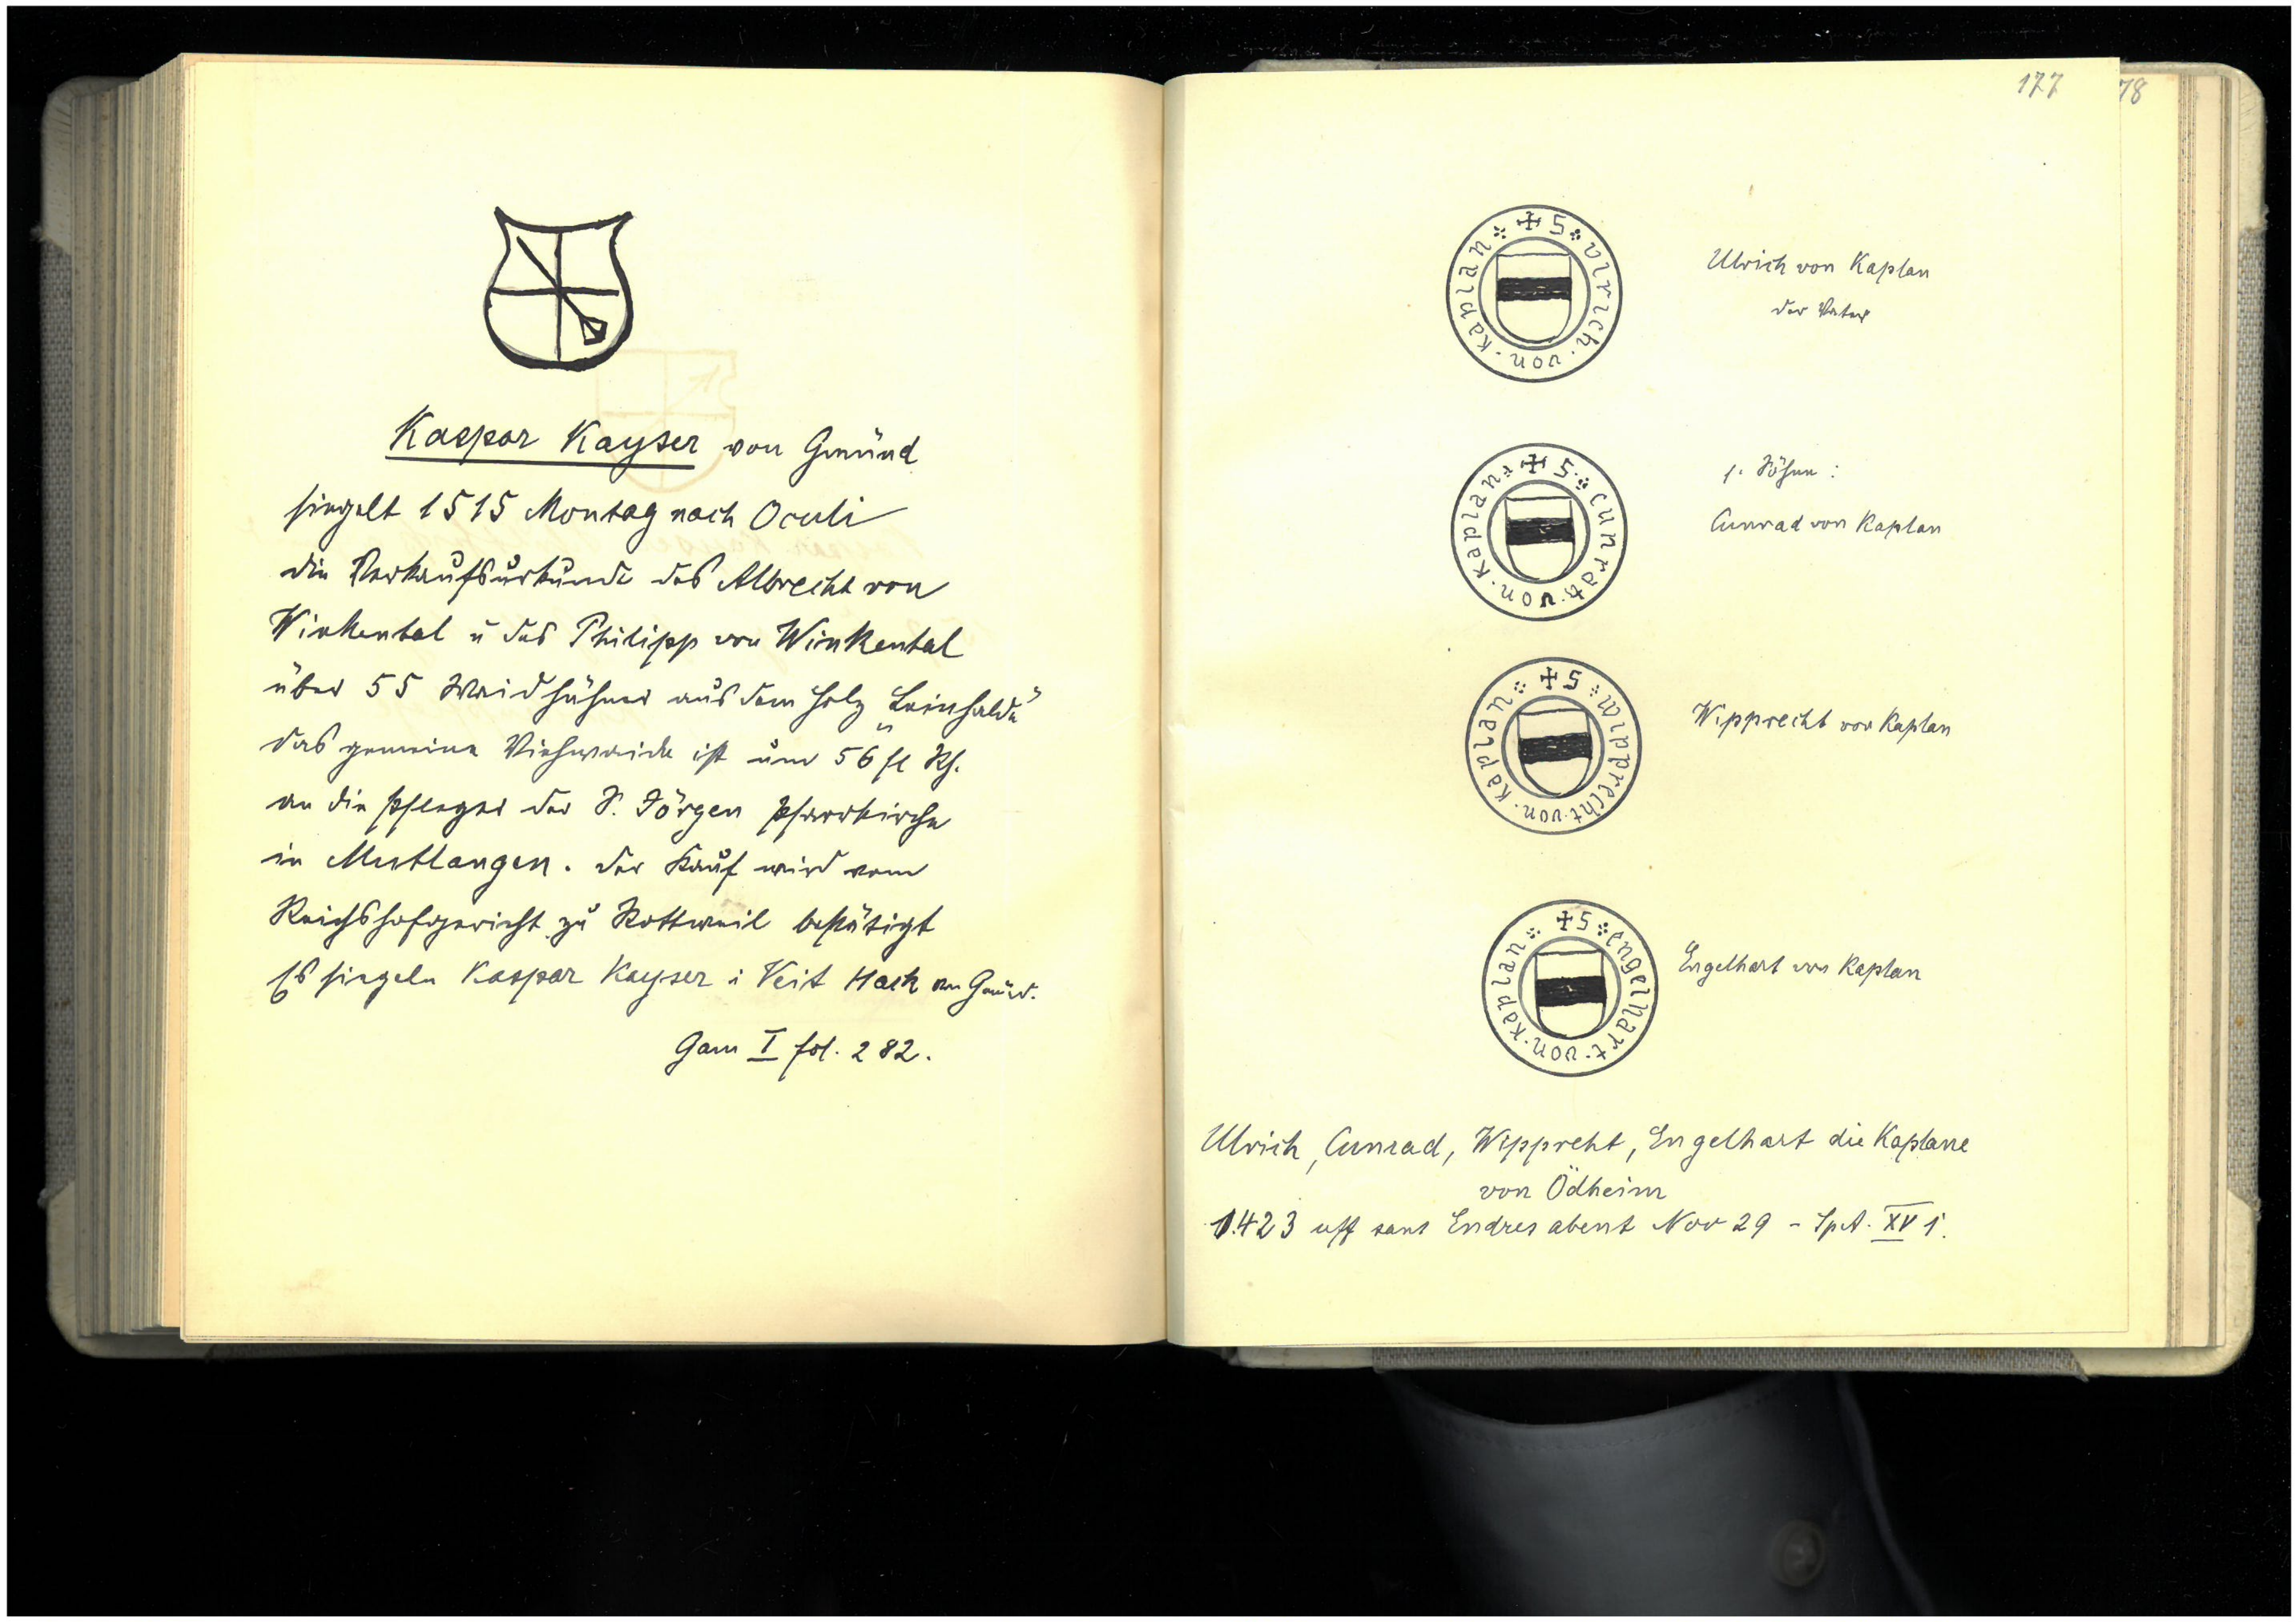 Kaspar Kayser von Gmünd
siegelt 1515 Montag nach Oculi
die Verkaufsurkunde des Albrecht von
Winkental u des Philipp von Winkental
über 55 Waidhühner aus dem Holz „Leinhalde"
das gemeine Viehwaide ist um 56 fl Rh.
an die Pfleger der S. Jörgen Pfarrkirche
in Mutlangen. Der Kauf wird vom
Reichshofgericht zu Rottweil bestätigt
Es siegeln Kaspar Kayser u Veit Hack von Gmünd.
Gam I fol. 282.
177
78
✠ S ulrich · von · kaplan
Ulrich von Kaplan
der Vater
✠ S · cunrat · von · kaplan
s. Söhne :
Cunrad von Kaplan
✠ S wipprecht · von · kaplan
Wipprecht von Kaplan
✠ S engelhart · von · kaplan
Engelhart von Kaplan
Ulrich, Cunrad, Wippreht, Engelhart die Kaplane
von Ödheim
1423 uff sant Endres abent Nov 29 - SpA. XV